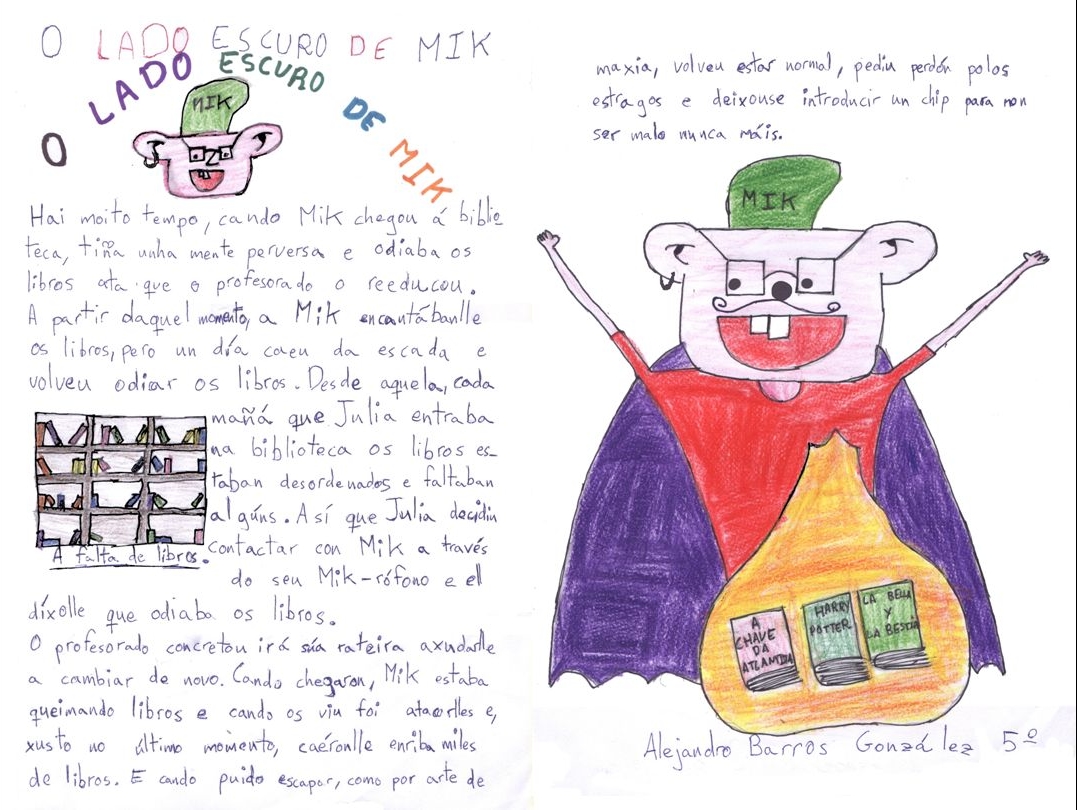 O LADO ESCURO DE MIK
O LADO ESCURO DE MIK
MIK
Hai moito tempo, cando Mik chegou á biblio
teca, tiña unha mente perversa e odiaba os
libros ata que o profesorado o reeducou.
A partir daquel momento, a Mik encantábanlle
os libros, pero un día caeu da escada e
volveu odiar os libros. Desde aquela, cada
mañá que Julia entraba
na biblioteca os libros es-
taban desordenados e faltaban
algúns. Así que Julia decidiu
contactar con Mik a través
do seu Mik-rófono e el
díxolle que odiaba os libros.
A falta de libros.
O profesorado concretou ir á súa rateira axudarlle
a cambiar de novo. Cando chegaron, Mik estaba
queimando libros e cando os viu foi atacarlles e,
xusto no último momento, caéronlle enriba miles
de libros. E cando puido escapar, como por arte de
maxia, volveu estar normal, pediu perdón polos
estragos e deixouse introducir un chip para non
ser malo nunca máis.
MIK
A CHAVE DA ATLANTIDA
HARRY POTTER
LA BELLA Y LA BESTIA
Alejandro Barros González 5º